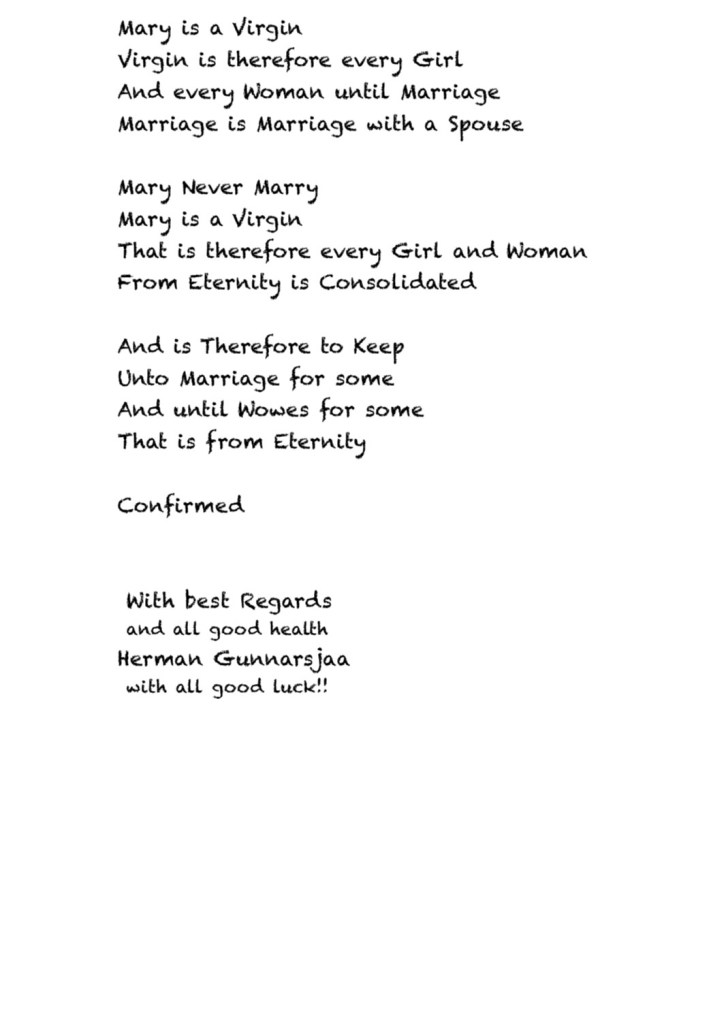 Mary is a Virgin
Virgin is therefore every Girl
And every Woman until Marriage
Marriage is Marriage with a Spouse
Mary Never Marry
Mary is a Virgin
That is therefore every Girl and Woman
From Eternity is Consolidated
And is Therefore to Keep
Unto Marriage for some
And until Wowes for some
That is from Eternity
Confirmed
With best Regards
and all good health
Herman Gunnarsjaa
with all good luck!!